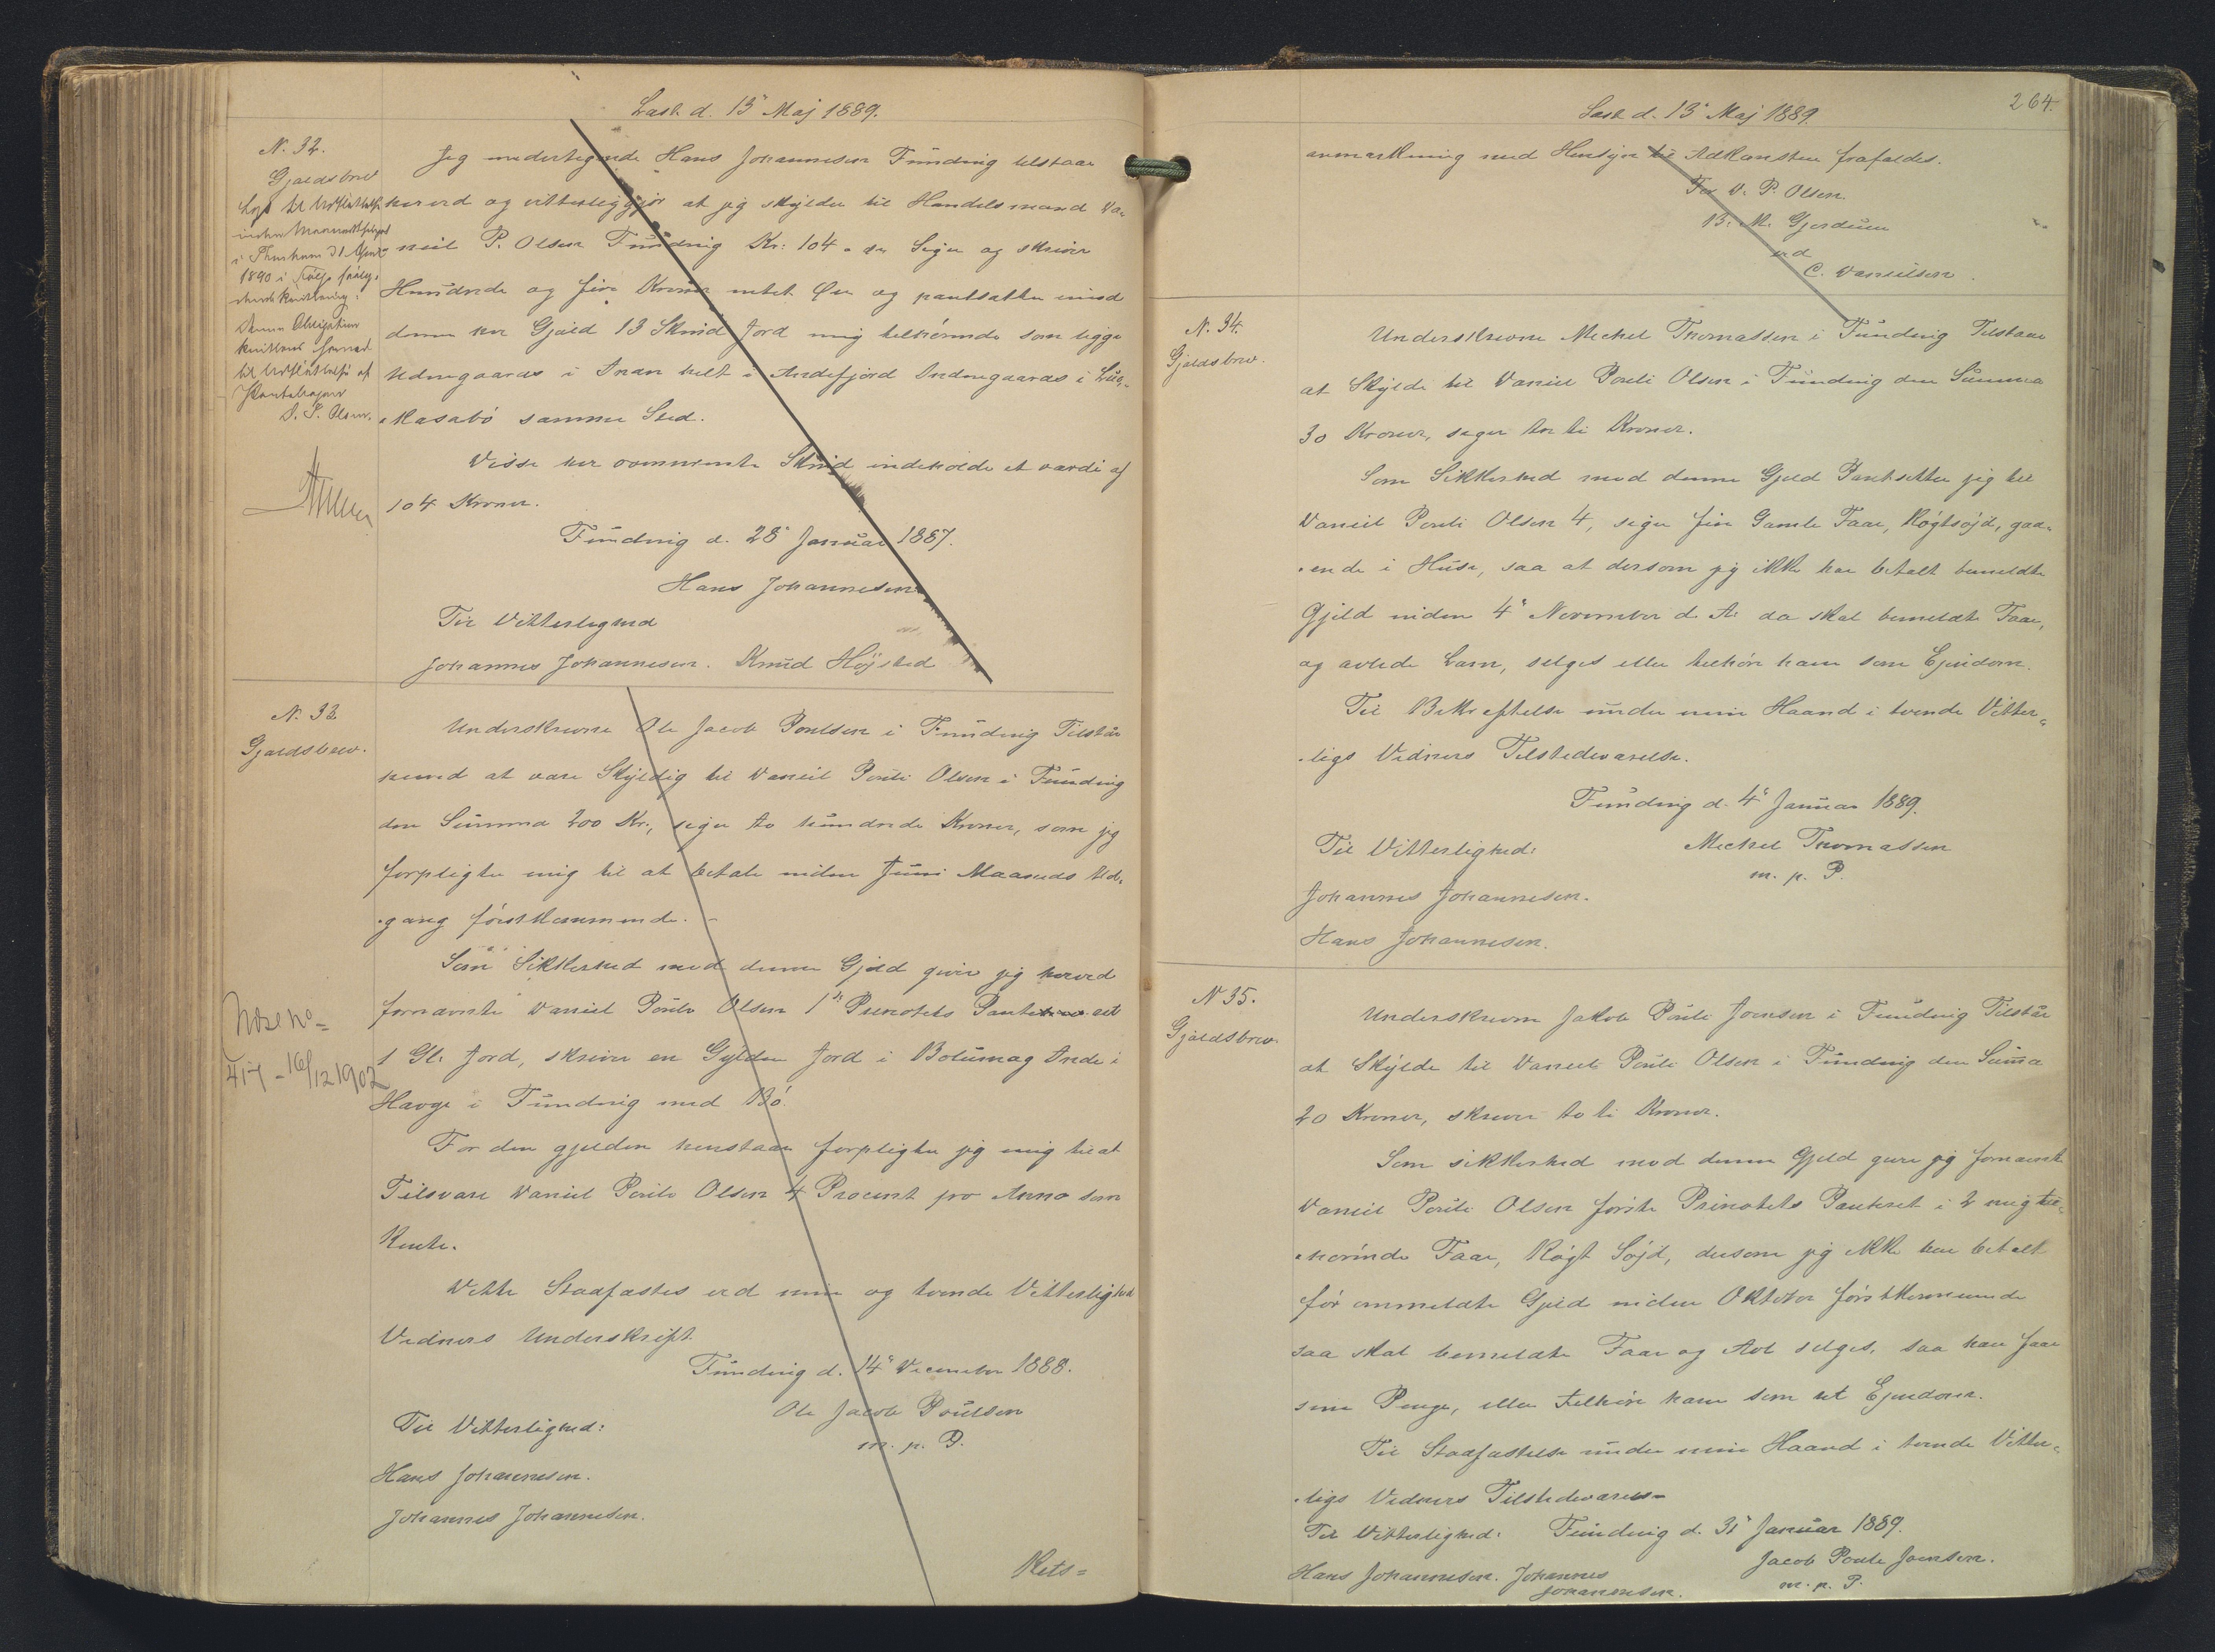 Læst d. 13' Maj 1889.
N. 32.
Gjældsbrev
i Thorshavn
1890 i Følge
Denne Obligation
kvitteres
til Udslettelse af
D. P. Olsen.
Jeg undertegnede Hans Johannesen Funding tilstaar
herved og vitterliggjør at jeg skylder til Handelsmand Da-
niel P. Olsen Funding Kr: 104 Siger og skriver
Hundrede og fire Kroner intet Øre og pantsætter imod
denne her Gjæld 13 Skind Jord mig tilhørende som ligge
Udengaards i Andefjord Indengaards i
samme Sted.
Disse her ovennævnte Skind indeholde et værdi af
104 Kroner.
Funding d. 28' Januar 1887.
Hans Johannesen
Til Vitterlighed
Johannes Johannesen. Knud Højsted
N. 33
Gjældsbrev.
Underskrevne Ole Jacob Poulsen i Funding Tilstår
herved at være Skyldig til Daniel Pouli Olsen i Funding
den Summa 200 Kr., siger to hundrede Kroner, som jeg
forpligter mig til at betale inden Juni Maaneds Ud-
gang førstkommende.
Som Sikkerhed mod denne Gjeld giver jeg herved
fornævnte Daniel Pouli Olsen 1ste Prioritets Panteret
1 Gl. Jord, skriver en Gylden Jord i Bolumag Inde i
Havge i Funding med Bø.
417 - 16/12 1902
For den gjelden henstaar forpligter jeg mig til at
Tilsvare Daniel Pouli Olsen 4 Procent pro Anno som
Rente.
Dette Stadfæstes ved min og tvende Vitterligheds
Vidners Underskrift.
Funding d. 14' December 1888.
Ole Jacob Poulsen
m. p. P.
Til Vitterlighed:
Hans Johannesen.
Johannes Johannesen.
Rets=
264.
Læst d. 13' Maj 1889.
anmærkning med Hensyn til Adkomsten frafaldes.
For D. P. Olsen.
B. M. Gjerdum
ved
C. Danielsen.
N. 34.
Gjældsbrev.
Underskrevne Mechel Thomassen i Funding Tilstaar
at Skylde til Daniel Pouli Olsen i Funding den Summa
30 Kroner, siger tre ti Kroner.
Som Sikkerhed mod denne Gjeld Pantsetter jeg til
Daniel Pouli Olsen 4, siger fire Gamle Faar, Røgtsøjd, gaa-
ende i Husa, saa at dersom jeg ikke har betalt bemeldte
Gjeld inden 4' November d. A. da skal bemeldte Faar,
og avlede Lam, selges eller tilhøre ham som Ejendom.
Til Bekreftelse under min Haand i tvende Vitter-
ligs Vidners Tilstedeværelse.
Funding d. 4' Januar 1889.
Til Vitterlighed:
Mechel Thomassen
m. p. P.
Johannes Johannesen.
Hans Johannesen.
N 35.
Gjældsbrev.
Underskrevne Jakob Pouli Joensen i Funding Tilstår
at Skylde til Daniel Pouli Olsen i Funding den Suma
20 Kroner, skriver to ti Kroner.
Som sikkerhed mod denne Gjeld giver jeg fornævnte
Daniel Pouli Olsen første Prioritets Panteret i 2 mig til-
hørinde Faar, Røgt Søjd, dersom jeg ikke har betalt
før ommeldte Gjeld inden Oktober førstkommende
saa skal bemeldte Faar og Avl selges, saa han faar
sine Penge, eller tilhøre ham som ret Ejendom.
Til Stadfæstelse under min Haand i tvende Vitter-
ligs Vidners Tilstedeværels-
Til Vitterlighed: Funding d. 31' Januar 1889.
Jacob Poule Joensen.
m. p. P.
Hans Johannesen. Johannes
Johannesen.